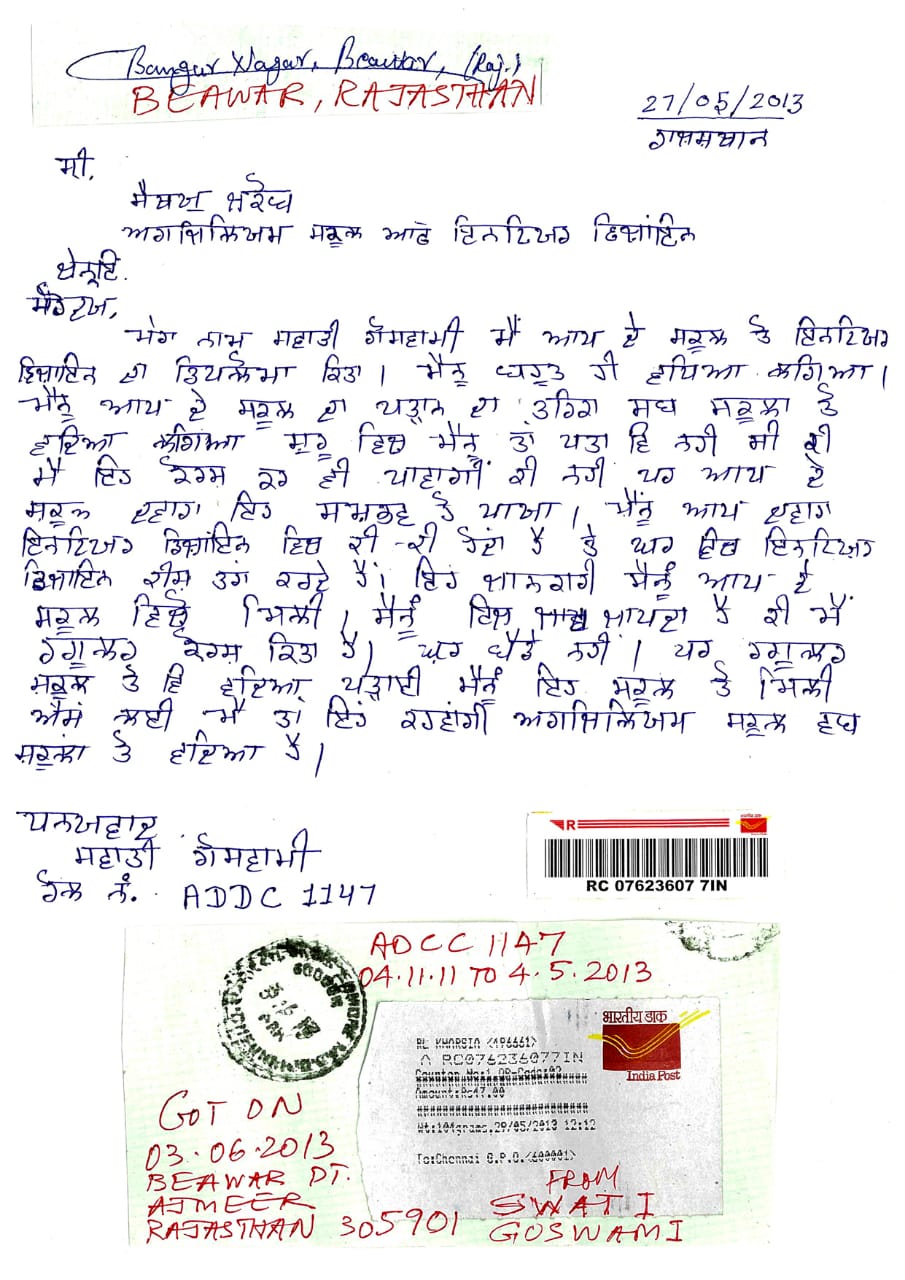 Bangur Nagar, Beawar, (Raj.)
BEAWAR, RAJASTHAN
27/05/2013
ਰਾਜਸਥਾਨ
ਸ਼੍ਰੀ,
ਅਰਾਜਿਲਿਅਮ ਸਕੂਲ ਆਫ ਇਨਟਿਅਰ ਡਿਜ਼ਾਂਇਨ
ਚੇਨੂਈ.
ਮੇਰਾ ਨਾਮ ਸਵਾਤੀ ਗੋਸਵਾਮੀ ਮੈਂ ਆਪ ਦੇ ਸਕੂਲ ਤੋ ਇਨਟਿਅਰ
ਡਿਜ਼ਾਇਨ ਦਾ ਡਿਪਲੋਮਾ ਕਿਤਾ। ਮੈਨੂ ਬਹੁਤ ਹੀ ਵਧਿਆ ਲਗਿਆ।
ਮੈਨੂੰ ਆਪ ਦੇ ਸਕੂਲ ਦਾ ਪੜ੍ਹਾਨ ਦਾ ਤਰਿਕਾ ਸਬ ਸਕੂਲਾ ਤੋ
ਵਦਿਆ ਲਗਿਆ ਸ਼ੁਰੂ ਵਿਚ ਮੈਨੂੰ ਤਾਂ ਪਤਾ ਵਿ ਨਹੀ ਸੀ ਕੀ
ਮੈ ਇਹ ਕੋਰਸ ਕਰ ਵੀ ਪਾਵਾਗੀਂ ਕੀ ਨਹੀ ਪਰ ਆਪ ਦੇ
ਸਕੂਲ ਦਵਾਰਾ ਇਹ ਸਮ੍ਭਵ ਹੋ ਪਾਯਾ। ਮੈਨੂੰ ਆਪ ਦਵਾਰਾ
ਇਨਟਿਅਰ ਡਿਜ਼ਾਂਇਨ ਵਿਚ ਕੀ-ਕੀ ਹੋਂਦਾ ਹੈ ਤੇ ਘਰ ਵਿਚ ਇਨਟਿਅਰ
ਡਿਜ਼ਾਇਨ ਕੀਸ ਤਰਾਂ ਕਰਦੇ ਹੈਂ। ਇਹ ਜਾਨਕਾਰੀ ਮੈਨੂੰ ਆਪ ਦੇ
ਸਕੂਲ ਵਿਚੋਂ ਮਿਲੀ। ਮੈਨੂੰ ਇਞ ਜਾਪਦਾ ਹੈ ਕੀ ਮੈਂ
ਰਗੂਲਰ ਕੋਰਸ ਕਿਤਾ ਹੈ। ਘਰ ਬੈਠੇ ਨਹੀ। ਪਰ ਰਗੂਲਰ
ਸਕੂਲ ਤੋ ਵਿ ਵਦਿਆ ਪੜ੍ਹਾਈ ਮੈਨੂੰ ਇਹ ਸਕੂਲ ਤੋ ਮਿਲੀ
ਐਸ ਲਈ ਮੈ ਤਾਂ ਇਹ ਕਹਵਾਂਗੀ ਅਰਾਜਿਲਿਅਮ ਸਕੂਲ ਸਬ
ਸਕੂਲਾਂ ਤੋ ਵਦਿਆ ਹੈ।
ਧਨਯਵਾਦ
ਸਵਾਤੀ ਗੋਸਵਾਮੀ
ਰੋਲ ਨੰ. ADDC 1147
R
RC 07623607 7IN
ADCC 1147
04.11.11 TO 4.5.2013
भारतीय डाक
India Post
RL KHARSIA <496661>
A RC076236077IN
Counter No:1,OP-Code:02
Amount:Rs47.00
Wt:104grams,29/05/2013 12:12
To:Chennai G.P.O.<600001>
GOT ON
03.06.2013
BEAWAR DT.
AJMEER
RAJASTHAN 305901
FROM
SWATI
GOSWAMI